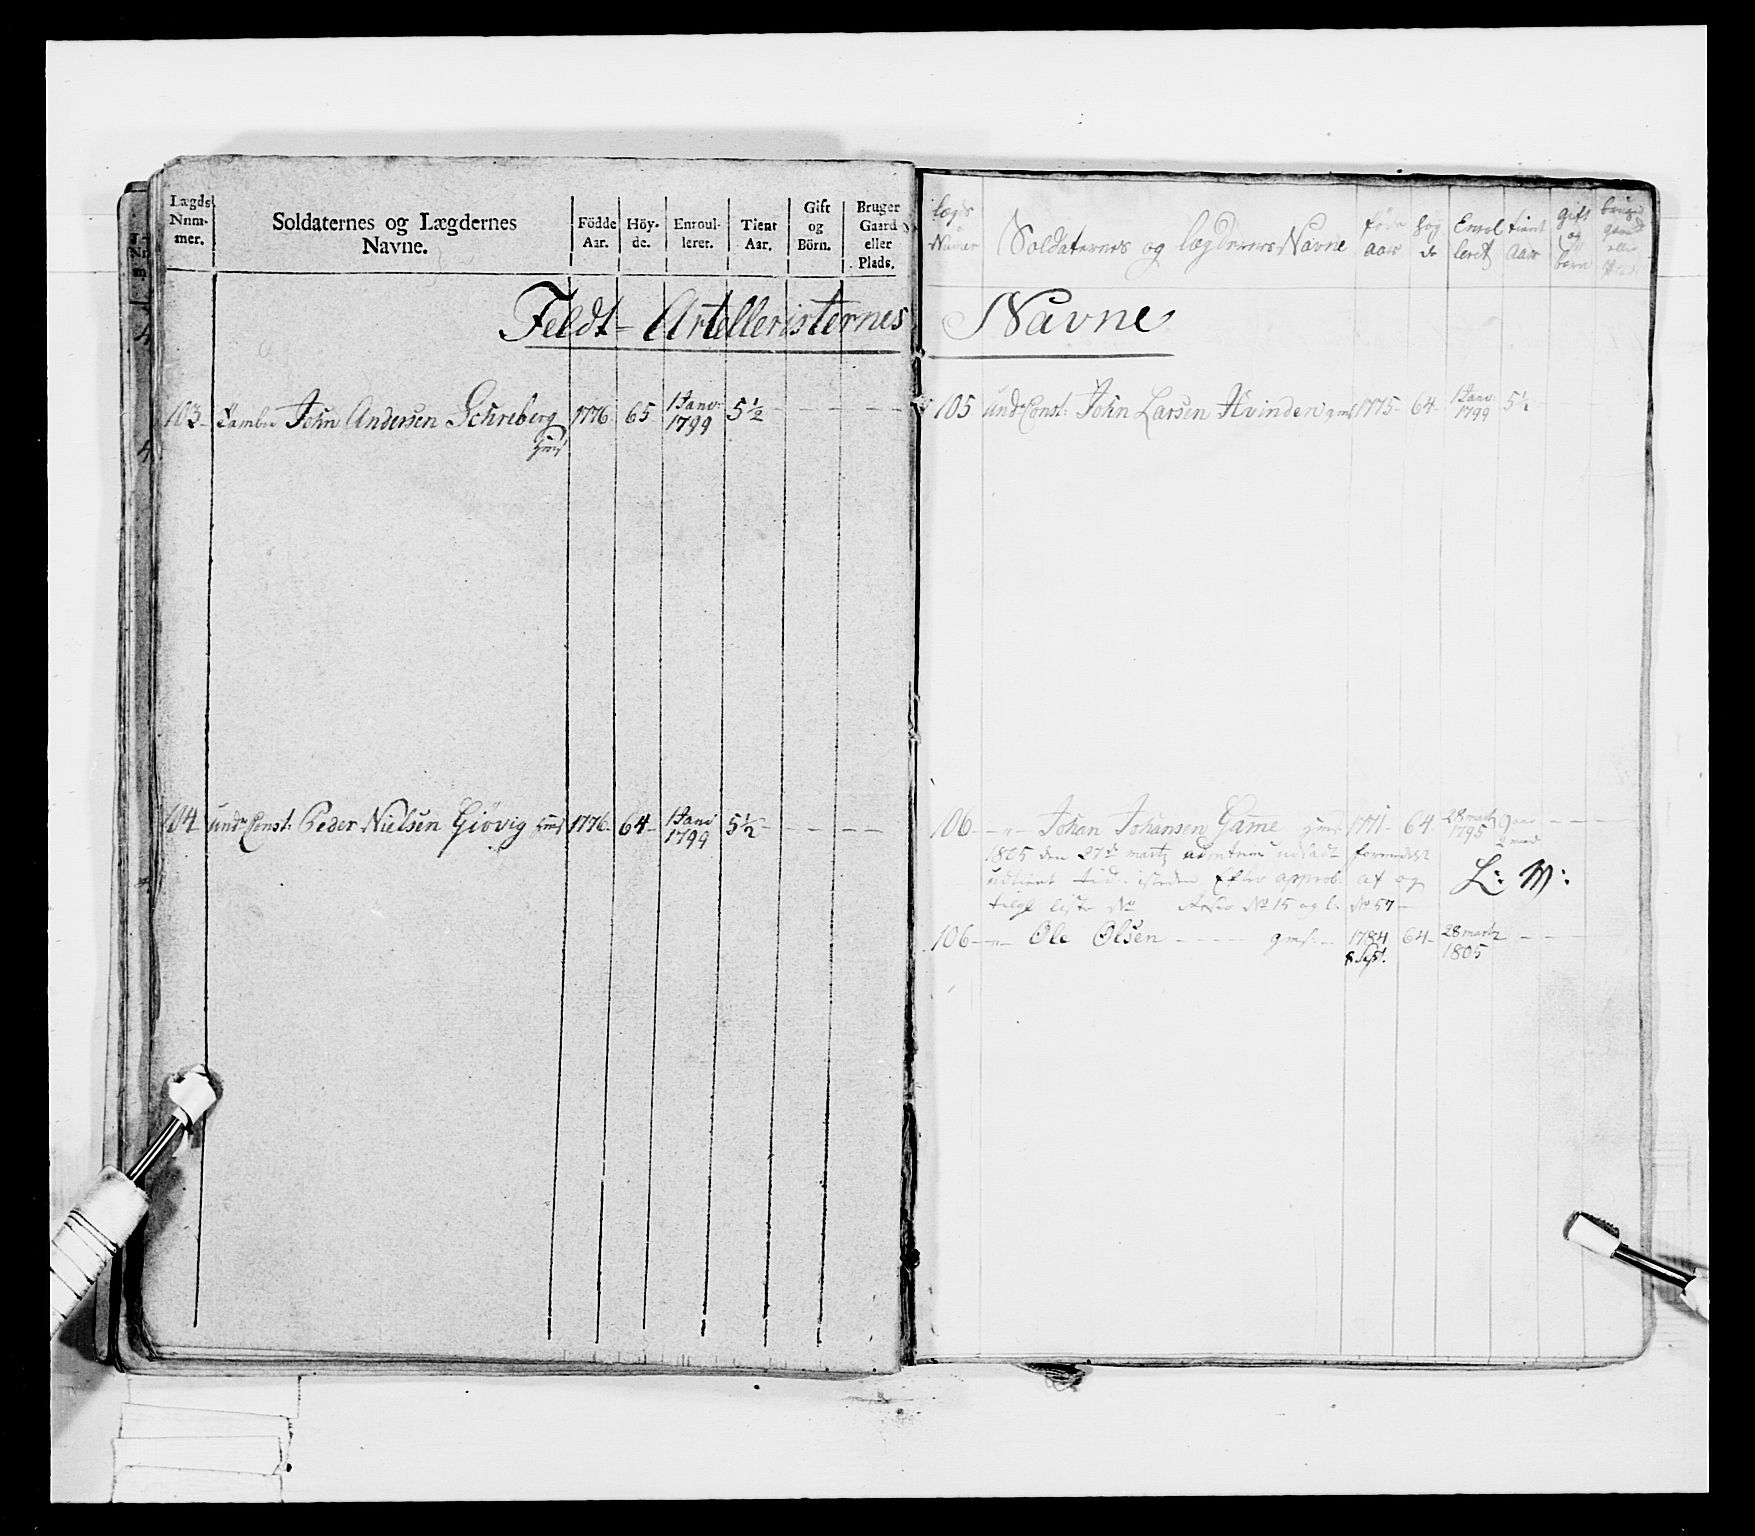 Lægds Num-mer.
Soldaternes og Lægdernes Navne.
Födde Aar.
Höy-de.
Enroul-lerer.
Tient Aar.
Gift og Börn.
Bruger Gaard eller Plads.
Feldt-Artelleristernes
103 Tambr John Andersen Schreberg 1776 65 1 Janv: 1799 5½
104 undr Const: Peder Nielsen Giövig 1776 64 1 Janv 1799 5½
lægds Numer
Soldaternes og lægdernes Navne
föde aar
höy de
Enrol lerdt
tient Aar
gift og börn
bruger gaard eller
Navne
105 undr Const: John Larsen Hvinden gms 1775 64 1 Janv: 1799 5½
106 — " — Johan Johansen Game 1771 64 28 martz 1795 9 aar 2 mad
1805 den 27de martz udladt
udtient tid isteden Efter approb: af og L: M:
liste No No 15 og l. No 57
106 — " — Ole Olsen gms: 1784 64 28 martz
8 Sept. 1805